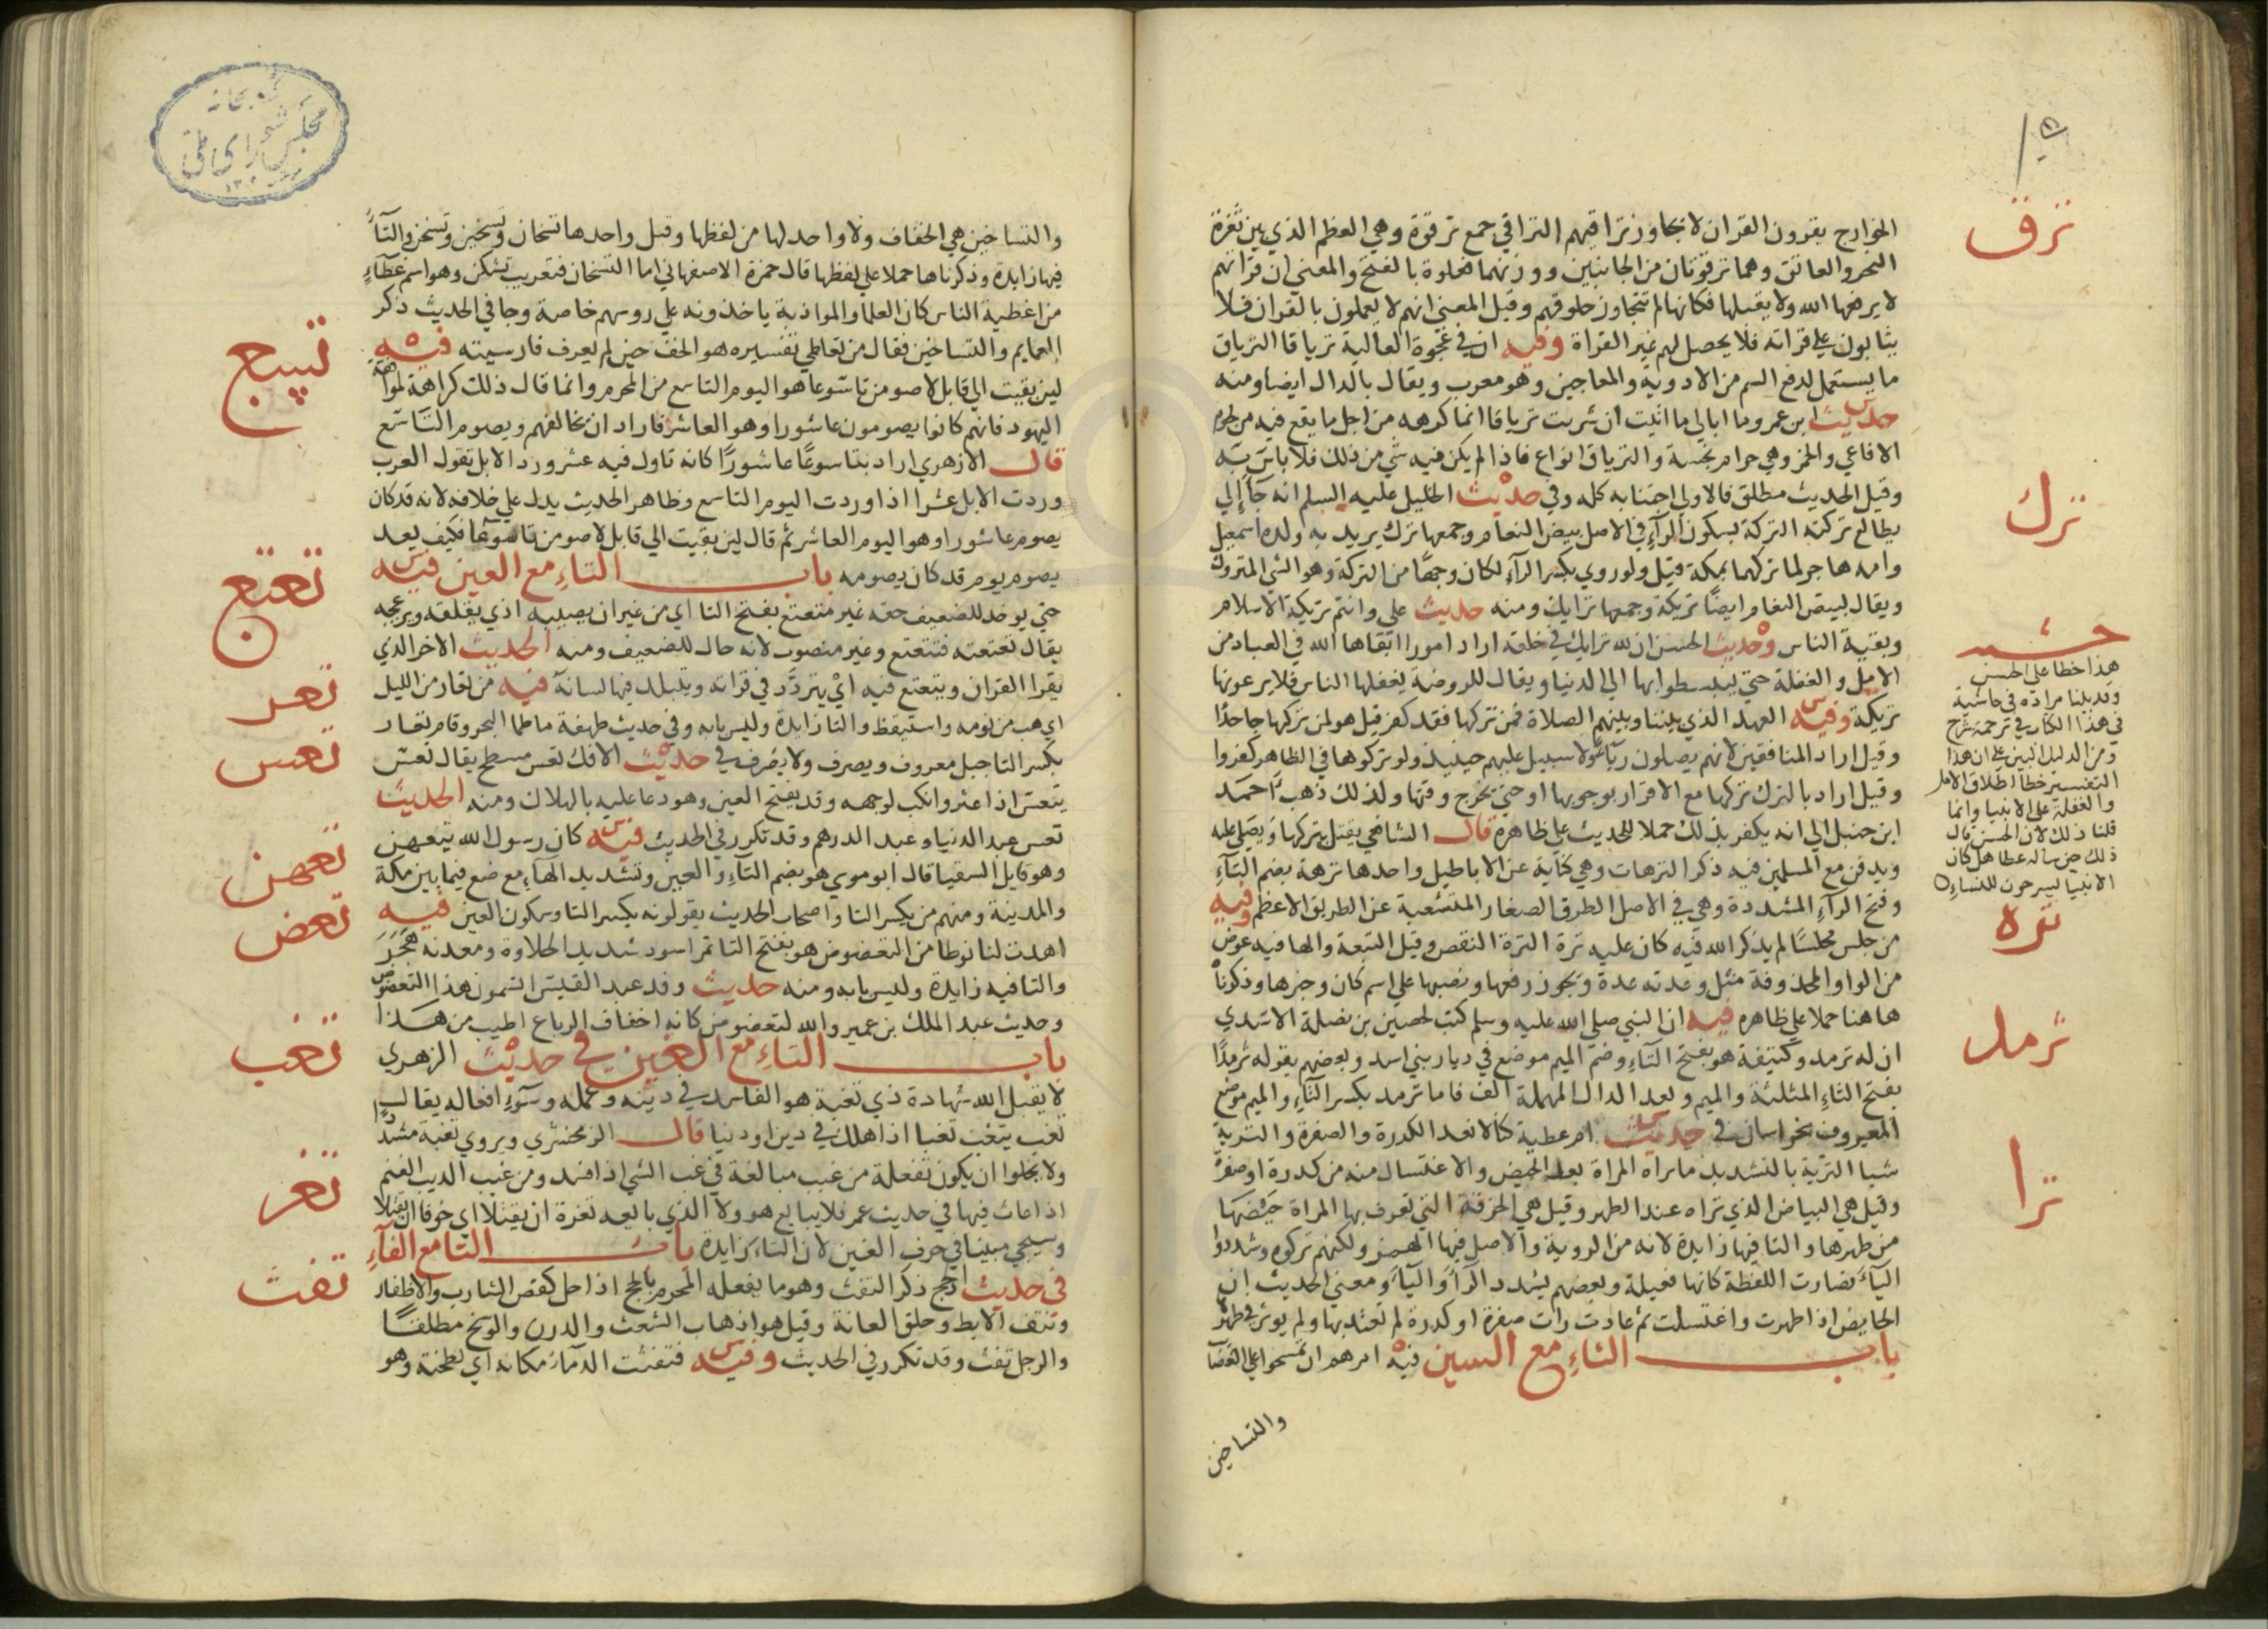 ترق
الخوارج يقرون القران لا يجاوز تراقيهم التراقي جمع ترقوة وهي العظم الذي بين ثغرة
النحر والعاتق وهما ترقوتان من الجانبين ووزنهما فعلوة بالفتح والمعني ان قراتهم
لا يرفعها الله ولا يقبلها فكانها لم تتجاوز حلوقهم وقيل المعني انهم لا يعملون بالقران فلا
يثابون علي قراته فلا يحصل لهم غير القراة وفيه ان في عجوة العالية ترياقا الترياق
ما يستعمل لدفع السم من الادوية والمعاجين وهو معرب ويقال بالدال ايضا ومنه
حديث ابن عمرو ما ابالي ما اتيت ان شربت ترياقا انما كرهه من اجل ما يقع فيه من لحوم
الافاعي والخمر وهي حرام نجسة والترياق انواع فاذا لم يكن فيه شي من ذلك فلا باس به
ترك
وقيل الحديث مطلق فالاولي اجتنابه كله وفي حديث الخليل عليه السلم انه جآ إلي
يطالع تركته التركة بسكون الرآءِ في الاصل بيض النعام وجمعها ترك يريد به ولده اسمعيل
وامه هاجر لما تركهما بمكة قيل ولو روي بكسر الرآءِ لكان وجهًا من التركة وهو الشي المتروك
ويقال لبيض النعام ايضًا تريكة وجمعها ترايك ومنه حديث علي وانتم تريكة الاسلام
وبقية الناس وحديث الحسن ان لله ترايك في خلقه اراد امورا ابقاها الله في العباد من
الامل والغفلة حتي ينبسطوا بها الي الدنيا ويقال للروضة يغفلها الناس فلا يرعونها
تريكة وفيه العهد الذي بيننا وبينهم الصلاة فمن تركها فقد كفر قيل هو لمن تركها جاحدًا
وقيل اراد المنافقين لانهم يصلون ريآءً ولا سبيل عليهم حينيذ ولو تركوها في الظاهر كفروا
وقيل اراد بالترك تركها مع الاقرار بوجوبها او حتي يخرج وقتها ولذلك ذهب احمد
ابن حنبل الي انه يكفر بذلك حملا للحديث علي ظاهره قال الشافعي يقتل بتركها ويصلي عليه
ويدفن مع المسلمين فيه ذكر الترهات وهي كناية عن الاباطيل واحدها ترهة بضم التآءِ
وفتح الرآءِ المشددة وهي في الاصل الطرق الصغار المتشعبة عن الطريق الاعظم وفيه
حشـ
هذا خطا علي الحسن
وقد بينا مراده في حاشية
في هذا الكتاب في ترجمة شرج
ومن الدليل البين علي ان هذا
التفسير خطأ اطلاق الامل
والغفلة علي الانبيا وانما
قلنا ذلك لان الحسن قال
ذلك حين ساله عطا هل كان
الانبيا ليسرحون للنساءِ
تره
من جلس مجلسًا لم يذكر الله فيه كان عليه ترة الترة النقص وقيل التبعة والها فيه عوض
من الواو المحذوفة مثل وعدته عدة ويجوز رفعها ونصبها علي اسم كان وخبرها وذكرناه
ترمد
هاهنا حملا علي ظاهره فيه ان النبي صلي الله عليه وسلم كتب لحصين بن نضلة الاسدي
ان له ترمد وكتيفة هو بفتح التآءِ وضم الميم موضع في ديار بني اسد وبعضهم يقوله ثرمدًا
بفتح الثاءِ المثلثة والميم وبعد الدال المهملة الف فاما ترمد بكسر التآءِ والميم موضع
المعروف بخراسان في حديث ام عطية كنا لا نعد الكدرة والصفرة والترية
ترا
شيا الترية بالتشديد ما تراه المراة بعد الحيض والاغتسال منه من كدرة او صفرة
وقيل هي البياض الذي تراه عند الطهر وقيل هي الخرقة التي تعرف بها المراة حيضها
من طهرها والتا فيها زايدة لانه من الروية والاصل فيها الهمز ولكنهم تركوه وشددوا
اليآءَ فصارت اللفظة كانها فعيلة وبعضهم يشدد الرآءَ واليآءَ ومعني الحديث ان
الحايض اذا طهرت واغتسلت ثم عادت رات صفرة او كدرة لم تعتد بها ولم يوثر في طهرها
باب التاءِ مع السين فيه امرهم ان يمسحوا علي العصا
والتساخين
والتساخين هي الخفاف ولا واحد لها من لفظها وقيل واحدها تسخان وتسخين وتسخن والتآءُ
فيها زايدة وذكرناها حملا علي لفظها قال حمزة الاصفهاني اما التسخان فتعريب تشكن وهو اسم غطآءٍ
من اغطية الناس كان العلما والموابذة ياخذونه علي روسهم خاصة وجا في الحديث ذكر
العمايم والتساخين فقال من تعاطي تفسيره هو الخف حين لم يعرف فارسيته فيه
تسع
لين بقيت الي قابل لاصومن تاسوعا هو اليوم التاسع من المحرم وانما قال ذلك كراهة لموافقة
اليهود فانهم كانوا يصومون عاشورا وهو العاشر فاراد ان يخالفهم ويصوم التاسع
قال الازهري اراد بتاسوعًا عاشورًا كانه تاول فيه عشر ورد الابل تقول العرب
وردت الابل عشرا اذا وردت اليوم التاسع وظاهر الحديث يدل علي خلافه لانه قد كان
يصوم عاشورا وهو اليوم العاشر ثم قال لين بقيت الي قابل لاصومن تاسوعا فكيف يعد
يصوم يوم قد كان يصومه باب التاءِ مع العين فيه
تعتع
حتي يوخذ للضعيف حقه غير متعتع بفتح التا اي من غير ان يصيبه اذي يقلقه ويزعجه
يقال تعتعته فتتعتع وغير منصوب لانه حال للضعيف ومنه الحديث الاخر الذي
يقرا القران ويتتعتع فيه ايْ يتردَّد في قراته ويتبلد فيها لسانه فيه من تعار من الليل
تعر
اي هب من نومه واستيقظ والتا زايدة وليس بابه وفي حديث طهفة ما طما البحر وقام تعار
تعس
بكسر التا جبل معروف ويصرف ولا يصرف في حديث الافك تعس مسطح يقال تعس
يتعس اذا عثر وانكب لوجهه وقد يفتح العين وهو دعا عليه بالهلاك ومنه الحديث
تعس عبد الدنيا وعبد الدرهم وقد تكرر في الحديث فيه كان رسول الله بتعهن
تعهن
وهو قايل السقيا قال ابو موسي هو بضم التآءِ والعين وتشديد الهآءِ موضع فيما بين مكة
والمدينة ومنهم من يكسر التا واصحاب الحديث يقولونه بكسر التا وسكون العين فيه
تعض
اهدت لنا نوطا من التعضوض هو بفتح التا تمر اسود شديد الحلاوة ومعدنه هجر
والتا فيه زايدة وليس بابه ومنه حديث وفد عبد القيس اتسمون هذا التعضوض
وحديث عبد الملك بن عمير والله لتعضوض كانه اخفاف الرباع اطيب من هذا
باب التاءِ مع الغين في حديث الزهري
تغب
لا يقبل الله شهادة ذي تغبة هو الفاسد في دينه وعمله وسوءِ افعاله يقال
تغب يتغب تغبا اذا هلك في دين او دنيا قال الزمخشري ويروي تغبة مشددًا
ولا يخلوا ان يكون تفعلة من غبب مبالغة في غب الشي اذا فسد ومن غبب الذيب الغنم
تغر
اذا عاث فيها في حديث عمر فلا يبايع هو ولا الذي بايعه تغرة ان يقتلا اي خوفا ان يقتلا
وسيجي مبينا في حرف الغين لان التاء زايدة باب التا مع الفآءِ
تفث
في حديث الحج ذكر التفث وهو ما يفعله المحرم بالحج اذا حل كقص الشارب والاظفار
ونتف الابط وحلق العانة وقيل هو اذهاب الشعث والدرن والوسخ مطلقًا
والرجل تفث وقد تكرر في الحديث وفيه فتفثت الدمآءُ مكانه اي لطخته وهو
كتابخانه
مجلس شورای ملی